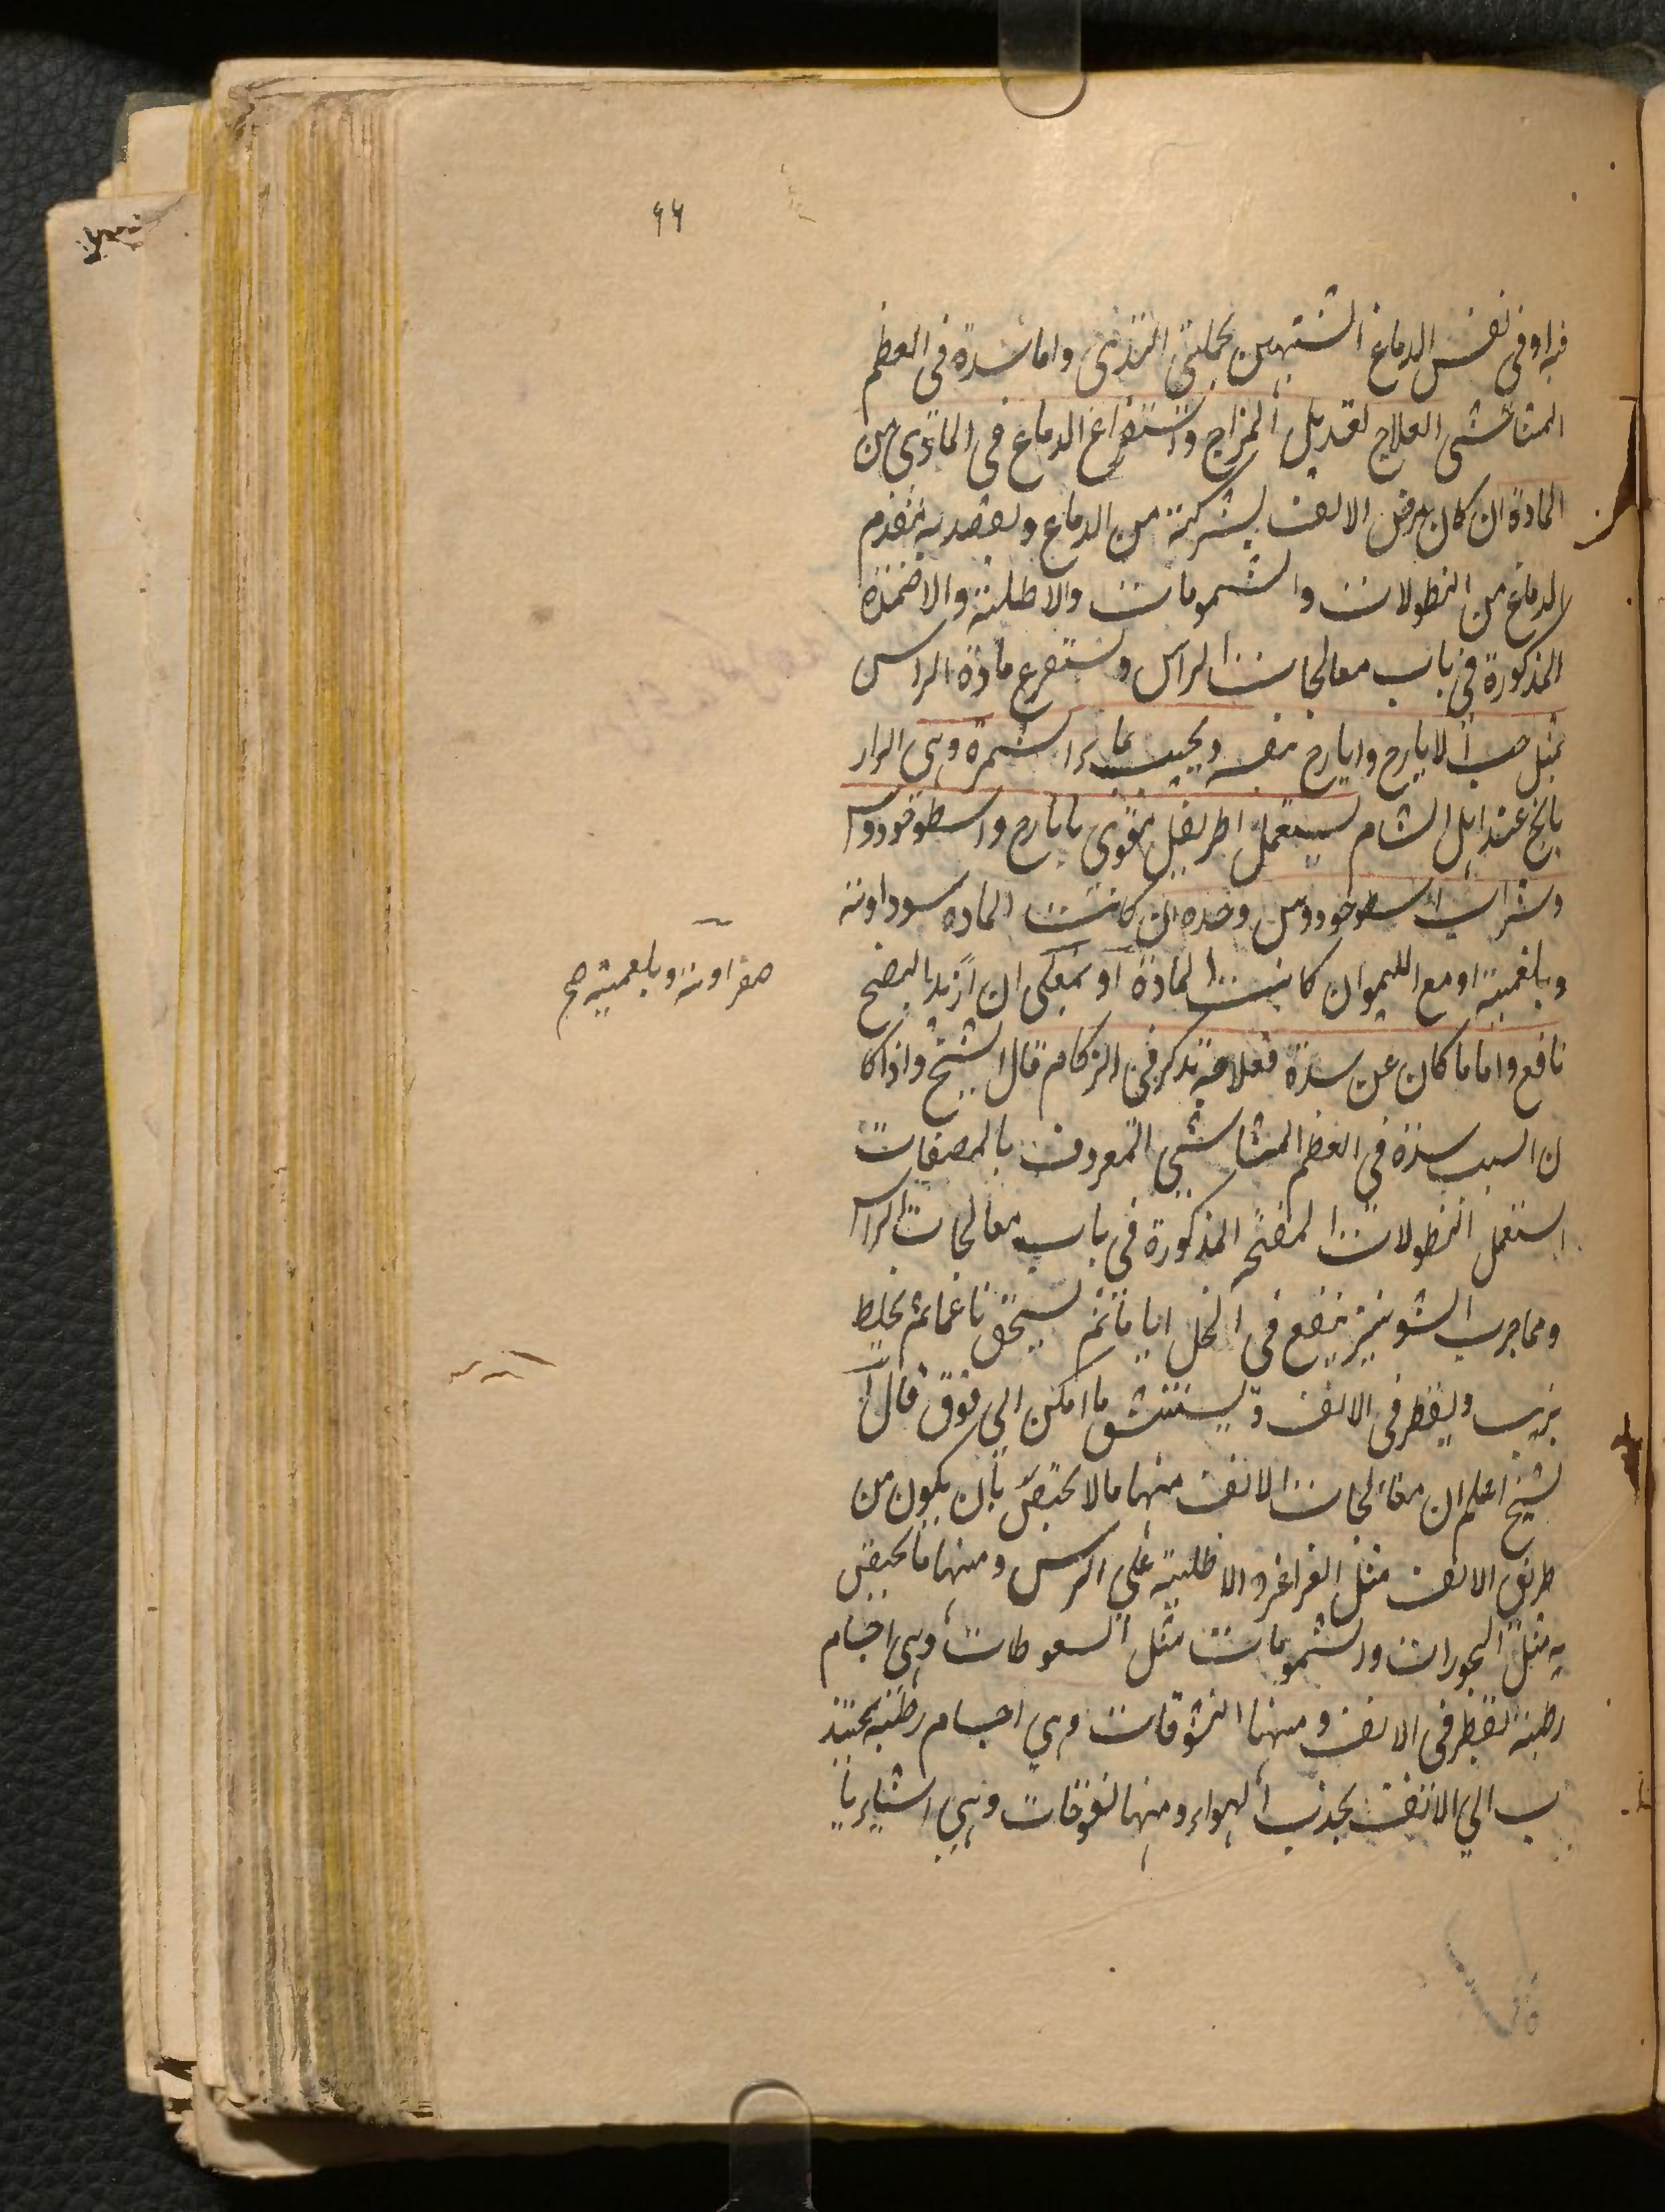 ٩٩
فيه او فى نفس الدماغ الشبيهين بحلمتى الثدى واما سدة فى العظم
المشاشى العلاج تعديل المزاج واستفراغ الدماغ فى المادى من
المادة ان كان مرض الانف بشركة من الدماغ ويقصد به مقدم
الدماغ من النطولات والشمومات والاطلية والاضمدة
المذكورة فى باب معالجات الراس ويستفرغ مادة الراس
بمثل حب الايارج وايارج نفسه ويجيب بماء الشمرة وهى الرار
يانج عند اهل الشام يستعمل اطريفل مقوى بايارج واسطوخودوس
وشراب اسطوخودوس وحده ان كانت المادة سوداوية
وبلغمية او مع الليمو ان كانت المادة او بمغلى ان اريد النضج
صفراوية وبلغمية صح
نافع واما ما كان عن سدة فعلاجه تذكر فى الزكام قال الشيخ واذا كا
ن السبب سدة فى العظم المشاشى المعروف بالمصفات
استعمل النطولات المفتحة المذكورة فى باب معالجات الراس
ومما جرب الشونيز ينقع فى الخل اياما ثم يسحق ناعما ثم يخلط
بزيت ويقطر فى الانف ويستنشق ما امكن الى فوق قال ا
لشيخ اعلم ان معالجات الانف منها ما لا يختص بان يكون من
طريق الانف مثل الغراغر والاطلية على الراس ومنها ما يختص
به مثل البخورات والشمومات مثل السعوطات وهى اجسام
رطبة تقطر فى الانف ومنها النشوقات وهي اجسام رطبة تجتذ
ب الي الانف بجذب الهواء ومنها نفوخات وهى اشياء يا